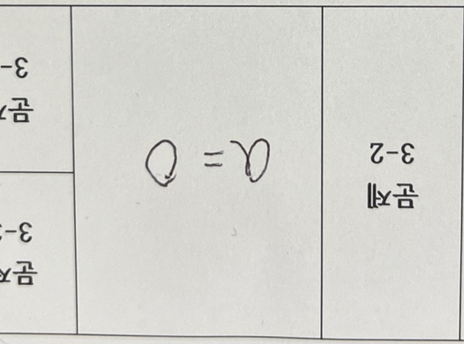 문제
3-2
a = 0
문
3-
문
3-